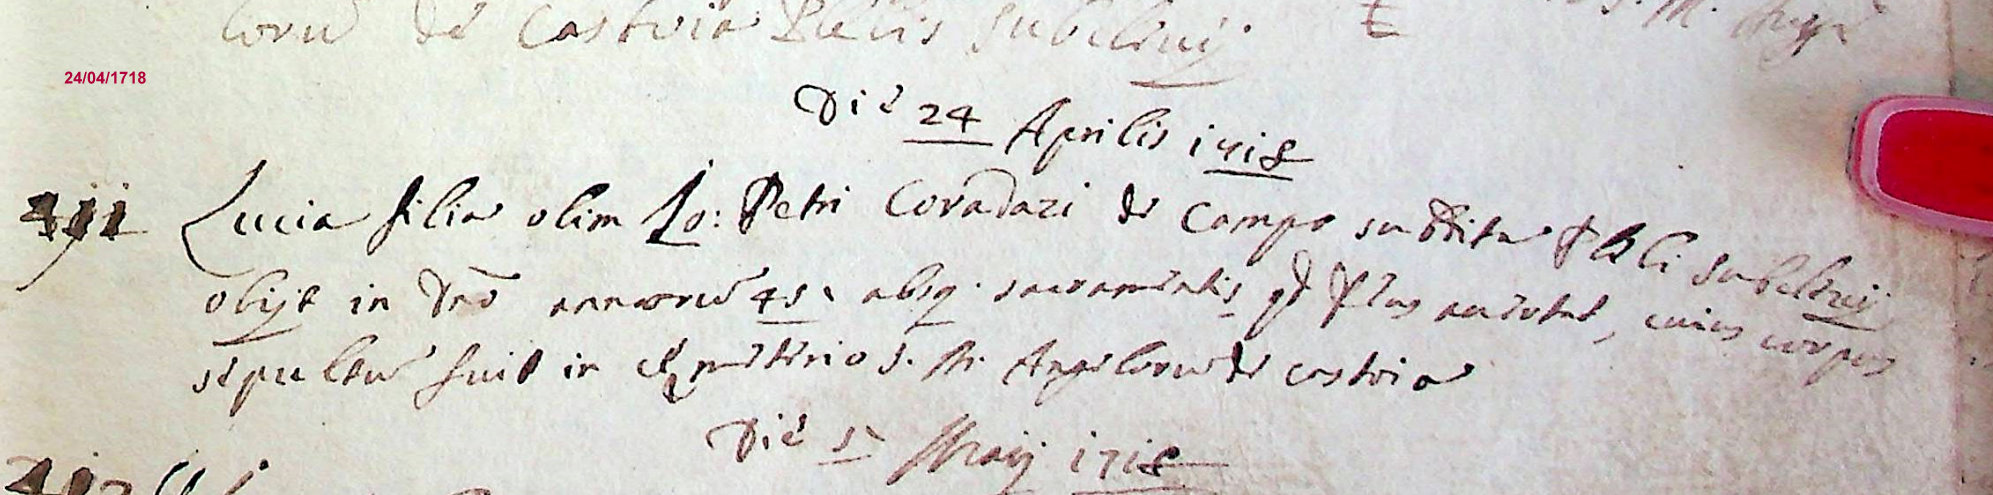 loru de Castoia Plebis Subilnij S. M. Ang
24/04/1718
Die 24 Aprilis 1718
411 Lucia filia olim Jo: Petri Coradazi de Campo subdita Plebi Subilnij
obijt in Dno annoru 45 absq. sacramentis qd, cuius corpus
sepultu fuit in Cemeterio S. M. Angeloru de Castoia
Die 5 Maij 1718